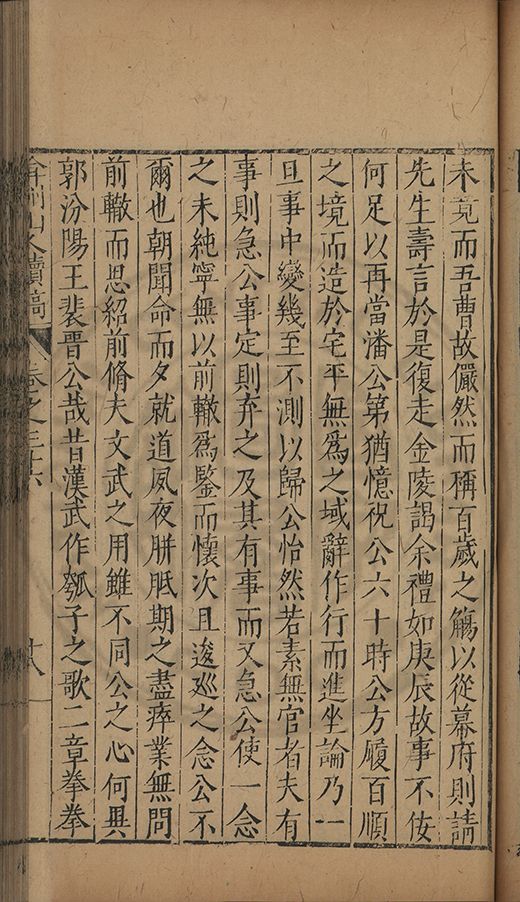 未竟而吾曹故儼然而稱百歲之觴以從幕府則請
先生壽言於是復走金陵謁余禮如庚辰故事不佞
何足以再當潘公第猶憶祝公六十時公方履百順
之境而造於宅平無爲之域辭作行而進坐論乃一
旦事中變幾至不測以歸公怡然若素無官者夫有
事則急公事定則弃之及其有事而又急公使一念
之未純寧無以前轍爲鑒而懷次且逡廵之念公不
爾也朝聞命而夕就道夙夜胼胝期之盡瘁業無問
前轍而思紹前脩夫文武之用雖不同公之心何異
郭汾陽王裴晋公哉昔漢武作瓠子之歌二章拳拳
弇州山人續稿 卷之三十六 十八